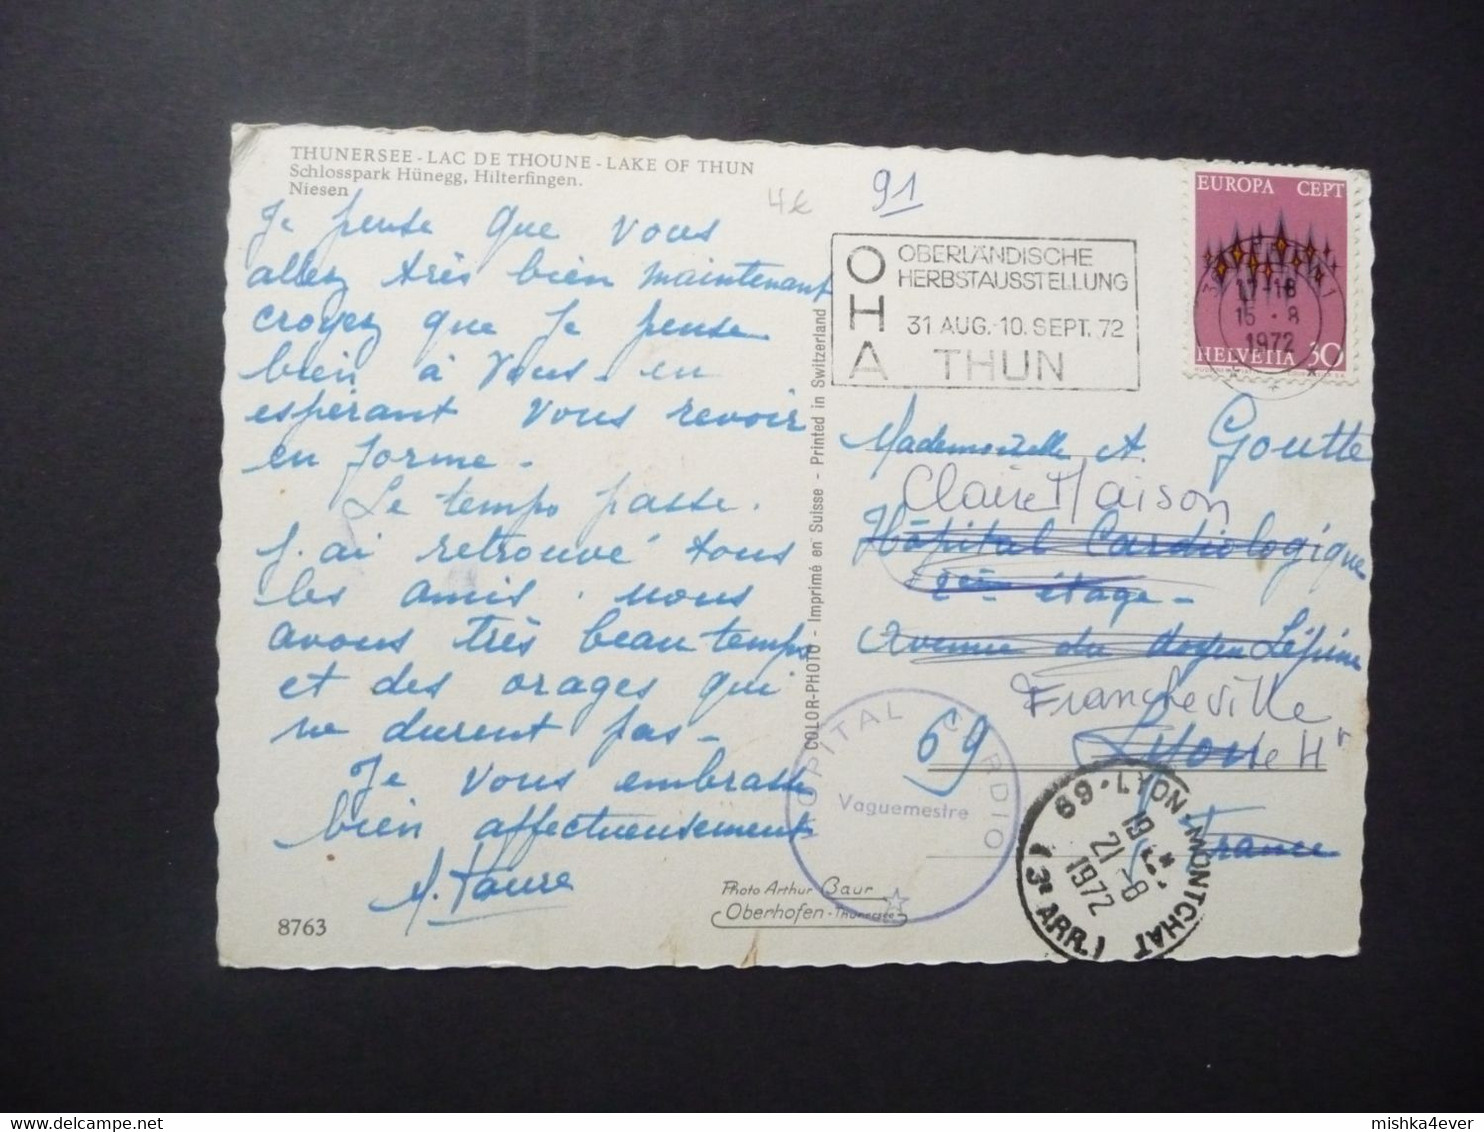 THUNERSEE - LAC DE THOUNE - LAKE OF THUN
Schlosspark Hünegg, Hilterfingen.
Niesen
4€
91
Je pense que vous
allez très bien maintenant
croyez que Je pense
bien à vous. en
espérant vous revoir
en forme -
Le temps passe.
J'ai retrouvé tous
les amis. nous
avons très beau temps
et des orages qui
ne durent pas -
Je vous embrasse
bien affectueusement
8763
Photo Arthur Baur
Oberhofen - Thunersee
COLOR-PHOTO - Imprimé en Suisse - Printed in Switzerland
OHA
OBERLÄNDISCHE
HERBSTAUSSTELLUNG
31 AUG.-10. SEPT. 72
THUN
EUROPA CEPT
HELVETIA 30
17-18
15 · 8
1972
Mademoiselle A. Goutte
Claire Maison
Hôpital Cardiologique
2ème étage -
Avenue du doyen Lépine
Francheville
Lyon
le Ht
69
France
HOPITAL CARDIO
Vaguemestre
69 - LYON-MONTCHAT
19 H
21 - 8
1972
(3e ARR.)
mishka4ever